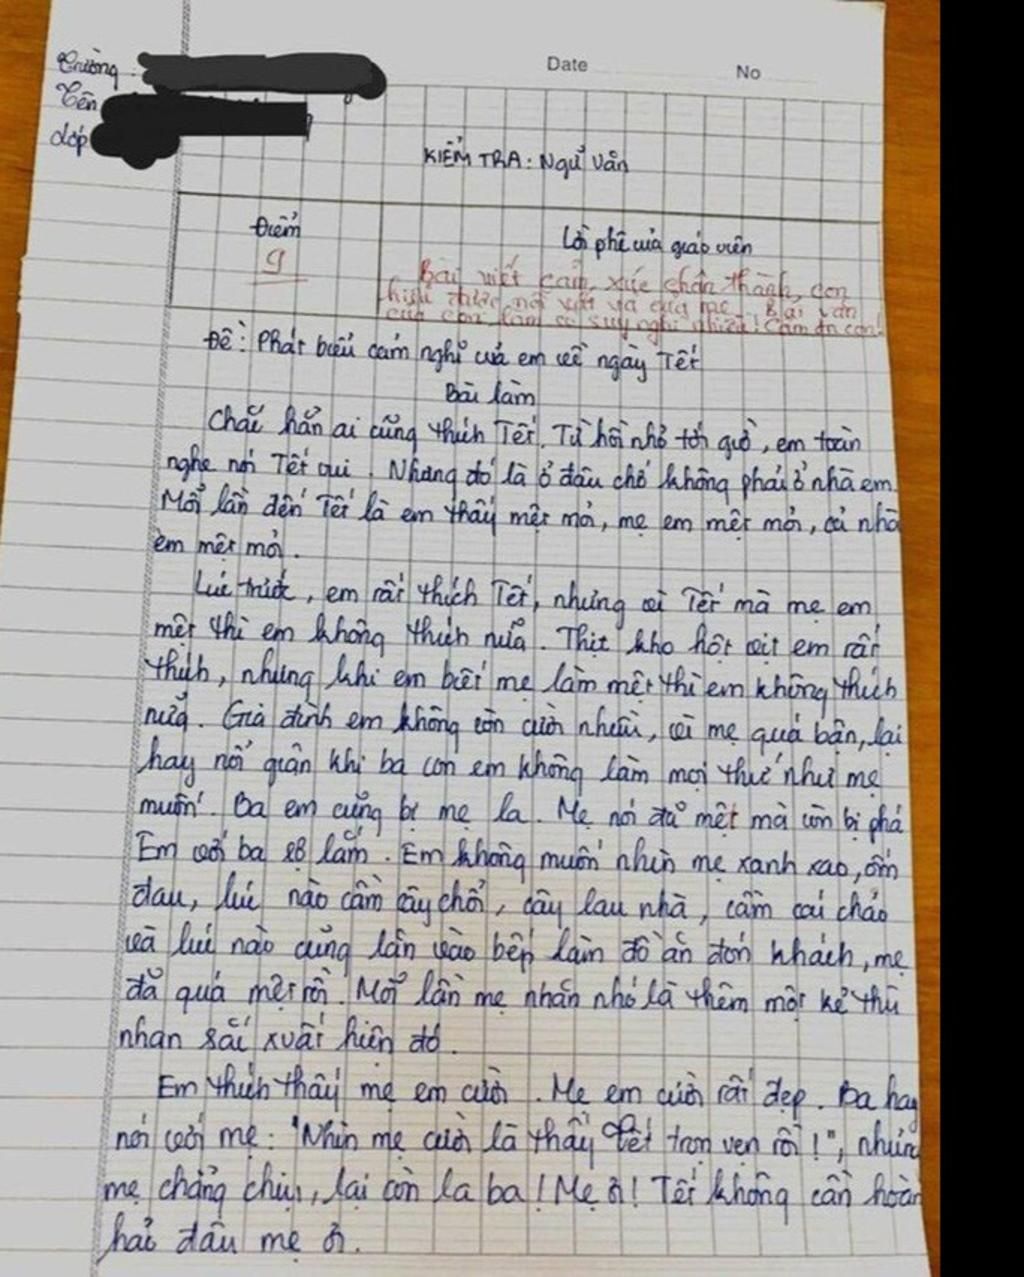 Trường:
Tên
Lớp
Date No
KIỂM TRA: Ngữ Văn
Điểm
9
Lời phê của giáo viên
Bài viết cảm xúc chân thành, con
hiểu được nỗi vất vả của mẹ. Bài văn
của con làm cô suy nghĩ nhiều! Cảm ơn con!
Đề: Phát biểu cảm nghĩ của em về ngày Tết
Bài làm
Chắc hẳn ai cũng thích Tết. Từ hồi nhỏ tới giờ, em toàn
nghe nói Tết vui. Nhưng đó là ở đâu chớ không phải ở nhà em.
Mỗi lần đến Tết là em thấy mệt mỏi, mẹ em mệt mỏi, cả nhà
em mệt mỏi.
Lúc trước, em rất thích Tết, nhưng vì Tết mà mẹ em
mệt thì em không thích nữa. Thịt kho hột vịt em rất
thích, nhưng khi em biết mẹ làm mệt thì em không thích
nữa. Gia đình em không còn cười nhiều, vì mẹ quá bận, lại
hay nổi giận khi ba con em không làm mọi thứ như mẹ
muốn. Ba em cũng bị mẹ la. Mẹ nói đã mệt mà còn bị phá
Em với ba sợ lắm. Em không muốn nhìn mẹ xanh xao, ốm
đau, lúc nào cầm cây chổi, cây lau nhà, cầm cái chảo
và lúc nào cũng lẩn vào bếp làm đồ ăn đón khách, mẹ
đã quá mệt rồi. Mỗi lần mẹ nhăn nhó là thêm một kẻ thù
nhan sắc xuất hiện đó.
Em thích thấy mẹ em cười. Mẹ em cười rất đẹp. Ba hay
nói với mẹ: "Nhìn mẹ cười là thấy Tết trọn vẹn rồi!", nhưng
mẹ chẳng chịu, lại còn la ba! Mẹ ơi! Tết không cần hoàn
hảo đâu mẹ ơi.